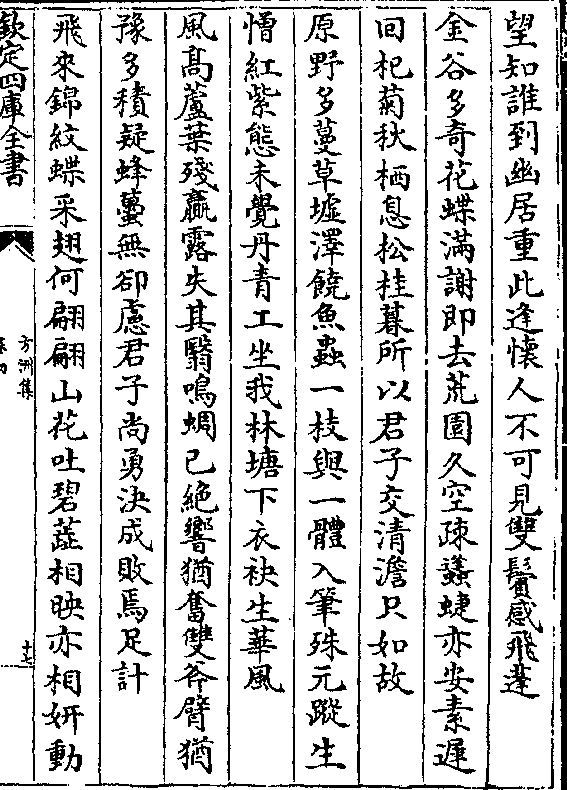 望知誰到幽居重此逢懷人不可見雙鬢感飛蓬
金谷多奇花蝶滿謝即去荒園久空疎蟻蜨亦安素遲
回杞菊秋栖息松桂暮所以君子交清澹只如故
原野多蔓草墟澤饒魚蟲一枝與一體入筆殊元蹤生
憎紅紫態未覺丹青工坐我林塘下衣袂生華風
風髙蘆葉殘蠃露失其翳鳴蜩已絶響猶奮雙斧臂猶
豫多積疑蜂蠆無卻慮君子尚勇決成敗焉足計
飛來錦紋蝶采翅何翩翩山花吐碧蕋相映亦相妍動
欽定四庫全書
方洲集
十七